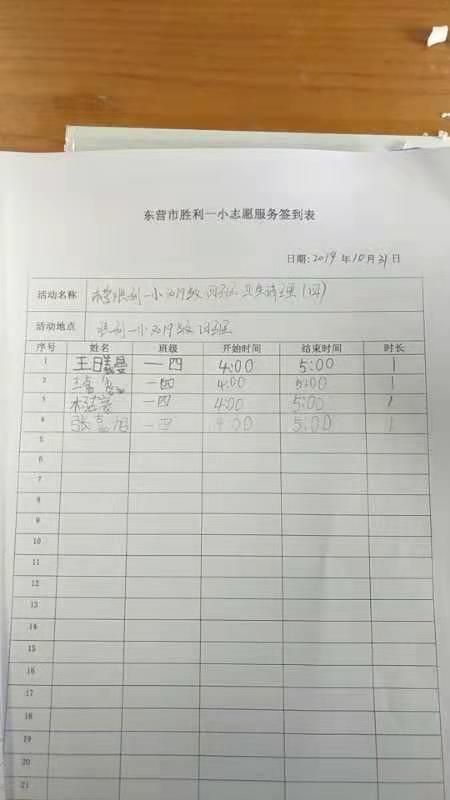 东营市胜利一小志愿服务签到表
日期:2019年10月31日
活动名称 东营胜利一小2019级四班 卫生清理(四)
活动地点 胜利一小2019级四班
序号 姓名 班级 开始时间 结束时间 时长
1 王曰曼 一四 4:00 5:00 1
2 王 一四 4:00 5:00 1
3 一四 4:00 5:00 1
4 张嘉旭 一四 4:00 5:00 1
5
6
7
8
9
10
11
12
13
14
15
16
17
18
19
20
21